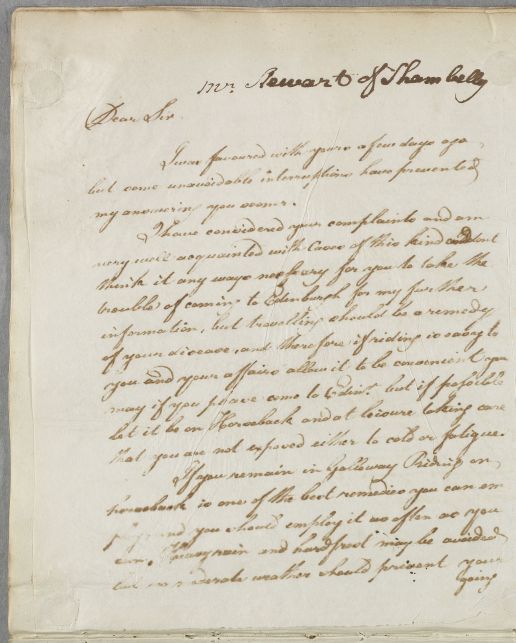 Mr. Stewart of Shambelly
Dear Sir.
I was favoured with yours a few days ago,
but some unavoidable interruptions have prevented
my answering you sooner.
I have considered your complaints and am
very well acquainted with Cases of this kind and dont
think it any ways necessary for you to take the
trouble of coming to Edinburgh for my further
information, but travelling should be a remedy
of your disease, and therefore if riding is easy to
you and your affairs allow it to be convenient you
may if you please come to Edinr. but if possible
let it be on Horseback and at leisure taking care
that you are not exposed either to cold or fatigue.
If you remain in Galloway Riding on
horseback is one of the best remedies you can em
ploy and you should employ it as often as you
can. Heavy rain and hard frost may be avoided
but no moderate weather should prevent your
going